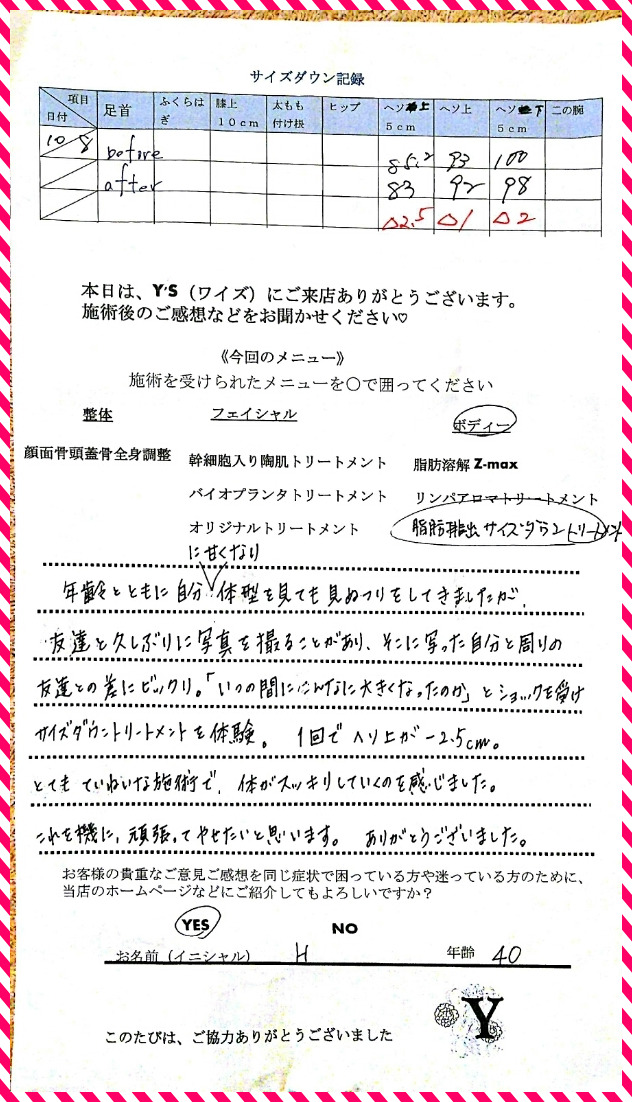 サイズダウン記録
項目 日付 足首 ふくらはぎ 膝上10cm 太もも付け根 ヒップ ヘソ上5cm ヘソ上 ヘソ下5cm 二の腕
10 8 before 85.2 93 100
after 83 92 98
△2.5 △1 △2
本日は、Y'S（ワイズ）にご来店ありがとうございます。
施術後のご感想などをお聞かせください♡
《今回のメニュー》
施術を受けられたメニューを〇で囲ってください
整体 フェイシャル ボディー
顔面骨頭蓋骨全身調整 幹細胞入り陶肌トリートメント 脂肪溶解 Z-max
バイオプランタトリートメント リンパアロマトリートメント
オリジナルトリートメント 脂肪排出サイズダウントリートメント
に甘くなり
年齢とともに自分体型を見ても見ぬつりをしてきましたが、
友達と久しぶりに写真を撮ることがあり、そこに写った自分と周りの
友達との差にビックリ。「いつの間にこんなに大きくなったのか」とショックを受け
サイズダウントリートメントを体験。 1回でヘソ上が-2.5cm。
とてもていねいな施術で、体がスッキリしていくのを感じました。
これを機に、頑張ってやせたいと思います。 ありがとうございました。
お客様の貴重なご意見ご感想を同じ症状で困っている方や迷っている方のために、
当店のホームページなどにご紹介してもよろしいですか？
YES NO
お名前（イニシャル） H 年齢 40
Y
このたびは、ご協力ありがとうございました